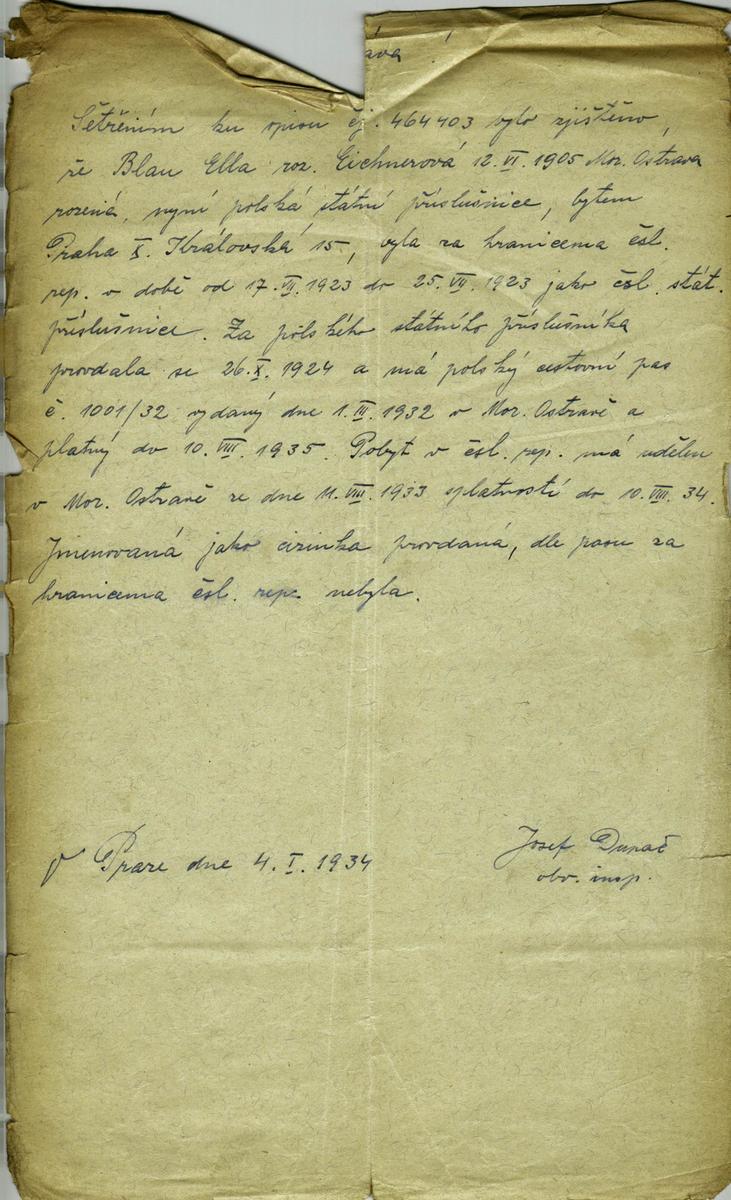 áva !
Šetřením ku spisu čj. 464403 bylo zjištěno,
že Blau Ella roz. Eichnerová 12.VI.1905 Mor. Ostrava
rozená, nyní polská státní příslušnice, bytem
Praha X. Královská 15, byla za hranicema čsl.
rep. v době od 17.VII.1923 do 25.VII.1923 jako čsl. stát.
příslušnice. Za polského státního příslušníka
provdala se 26.X.1924 a má polský cestovní pas
č. 1001/32 vydaný dne 1.III.1932 v Mor. Ostravě a
platný do 10.VIII.1935. Pobyt v čsl. rep. má udělen
v Mor. Ostravě ze dne 11.VIII.1933 splatností do 10.VIII.34.
Jmenovaná jako cizinka provdaná, dle pasu za
hranicema čsl. rep. nebyla.
V Praze dne 4.I.1934
Josef
obv. insp.